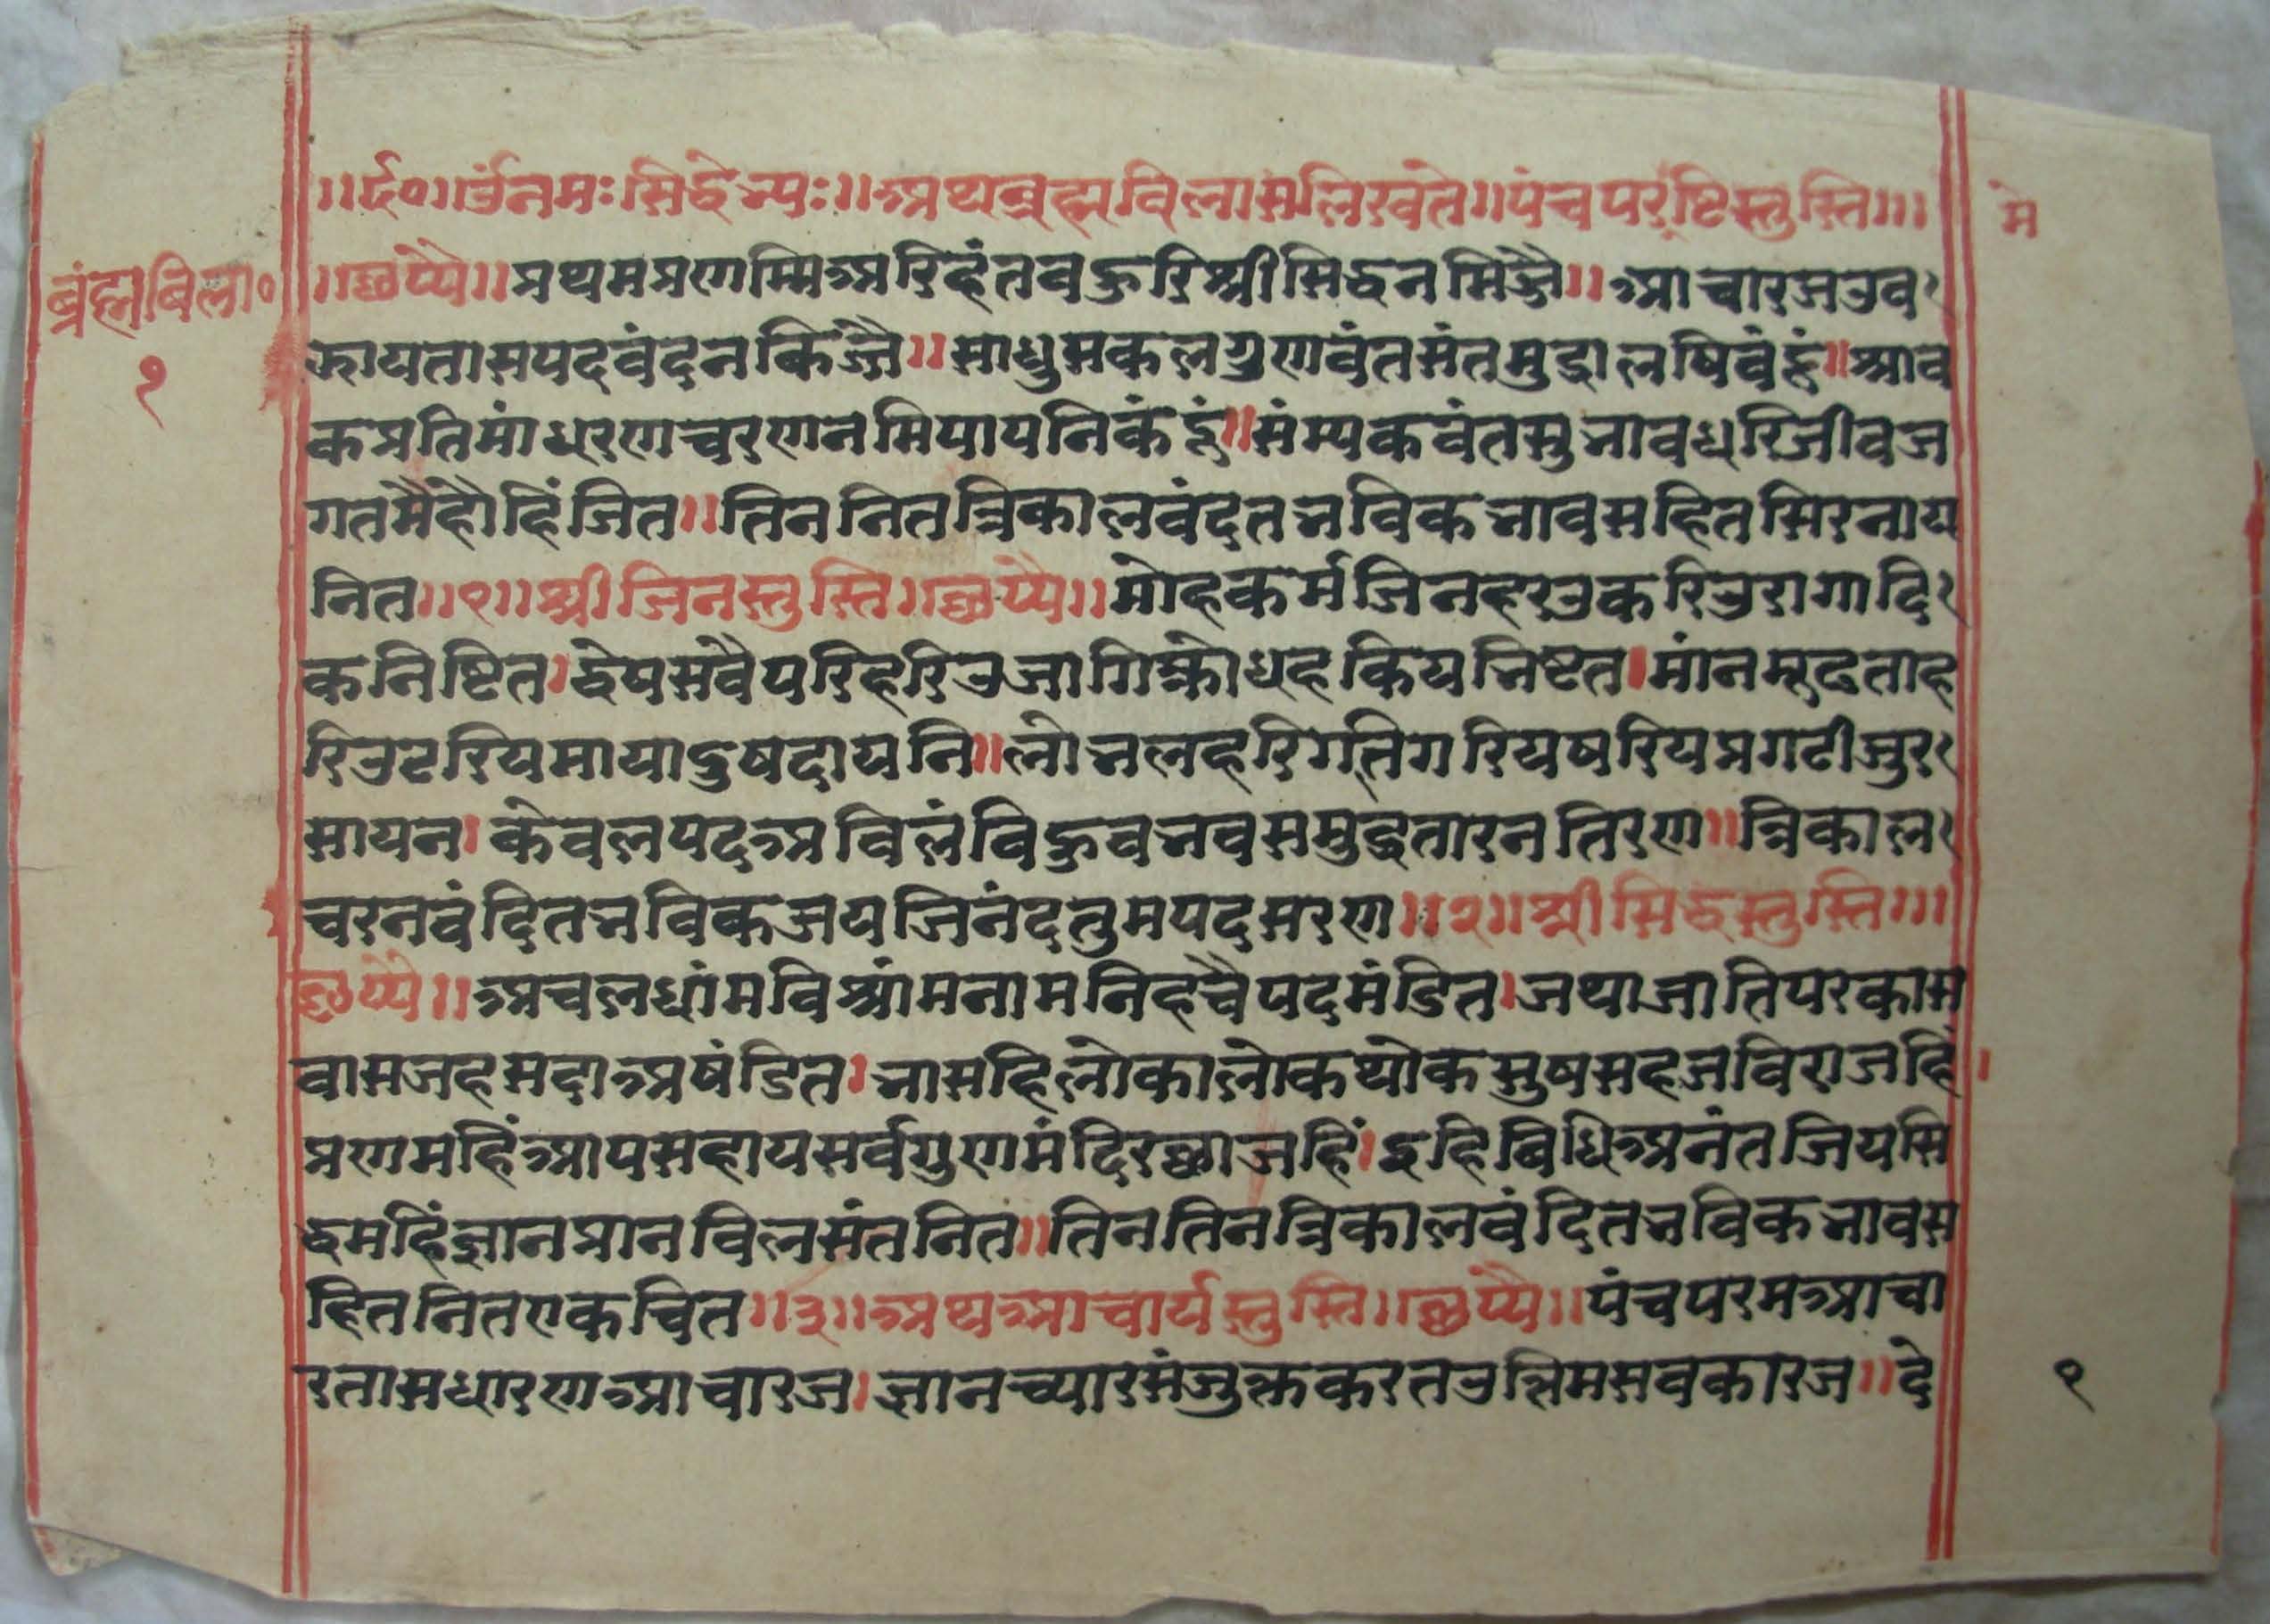 ॥ र्द० ॥ ॐ नमः सिद्धेभ्यः ॥ अथ ब्रह्मविलास लिख्यंते ॥ पंच परष्टि स्तुस्ति ॥।
मे
ब्रंह्मबिला०
१
॥ छप्पै ॥ प्रथम प्रणम्मि अरिहंत वहुरि श्री सिद्ध नमिज्जै ॥ आचारज उव
झाय तास पद वंदन किज्जै ॥ साधु सकल गुणवंत संत मुद्रा लषि वंदूं ॥ श्राव
क प्रतिमां धरण चरण नमि पाय निकंदूं ॥ संम्यकवंत सुभाव धरि जीव ज
गत मै हौ हिं जित ॥ तिन नित त्रिकाल वंदत भविक भाव सहित सिर नाय
नित ॥ १ ॥ श्री जिन स्तुस्ति ॥ छप्पै ॥ मोह कर्म जिन हरउ करिउ रागादि
क निष्टित । द्वेष सवै परिहरिउ जागि क्रोधह किय भिष्टत । मांन मूढता ह
रिउ टरिय माया दुषदायनि ॥ लोभ लहरि गति गरिय षरिय प्रगटी जुर
सायन । केवल पद अविलंवि हुव भव समुद्र तारन तिरण ॥ त्रिकाल
चरन वंदित भविक जय जिनंद तुम पद सरण ॥ २ ॥ श्री सिद्ध स्तुस्ति ॥।
छप्पै ॥ अचल धांम विश्रांम नाम निहचै पद मंडित । जथा जाति परकास
वास जह सदा अषंडित । भासहि लोकालोक थोक सुष सहज विराजहिं ।
प्रणमहिं आप सहाय सर्व गुण मंदिर छाजहिं । इहि बिधि अनंत जिय सि
द्धमहिं ज्ञान प्रान विलसंत नित ॥ तिन तिन त्रिकाल वंदित भविक भाव स
हित नित एक चित ॥ ३ ॥ अथ आचार्य स्तुस्ति ॥ छप्पै ॥ पंच परम आचा
र तास धारण आचारज । ज्ञान च्यार संजुक्त करत उत्तिम सव कारज ॥ दे
१